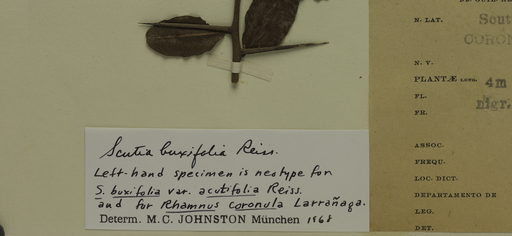 N. LAT. Scut
CORON
N. V.
PLANTÆ LONG. 4m
FL. nigr.
FR.
Scutia buxifolia Reiss.
Left-hand specimen is neotype for
S. buxifolia var. acutifolia Reiss.
and for Rhamnus coronula Larrañaga.
Determ. M.C. JOHNSTON München 1968
ASSOC.
FREQU.
LOC. DICT.
DEPARTAMENTO DE
LEG.
DET.